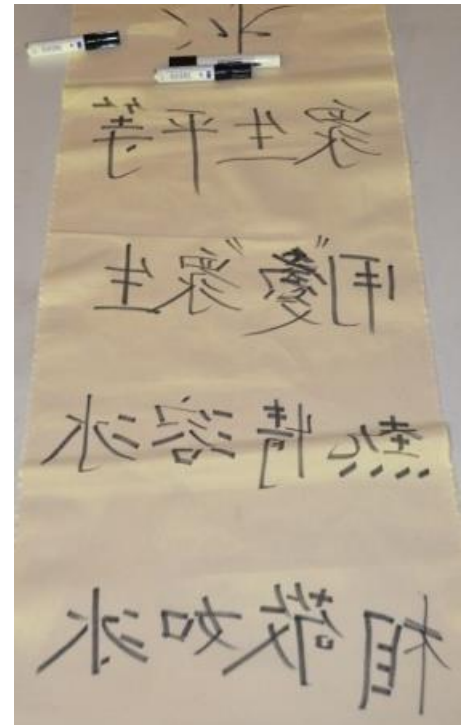 眾生平等
用“愛”眾生
熱情溶冰
相敬如冰